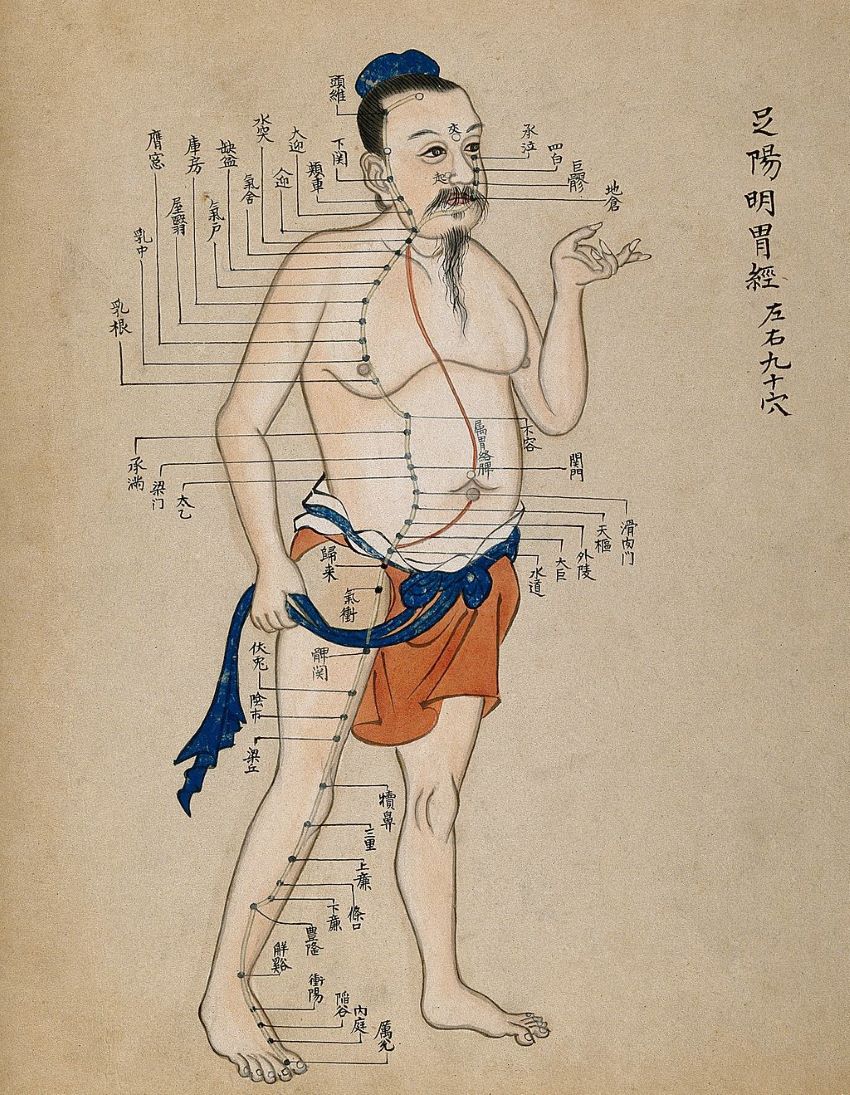 足陽明胃經
左右九十穴
頭維
下関
頰車
大迎
人迎
水突
氣舍
缺盆
氣户
庫房
屋翳
膺窓
乳中
乳根
交
起
承泣
四白
巨髎
地倉
不容
承滿
梁门
関門
太乙
滑肉门
天樞
外陵
大巨
水道
属胃絡脾
歸来
氣衝
髀関
伏兎
陰市
梁丘
犢鼻
三里
上廉
條口
下廉
豊隆
解谿
衝陽
陷谷
内庭
厲兊